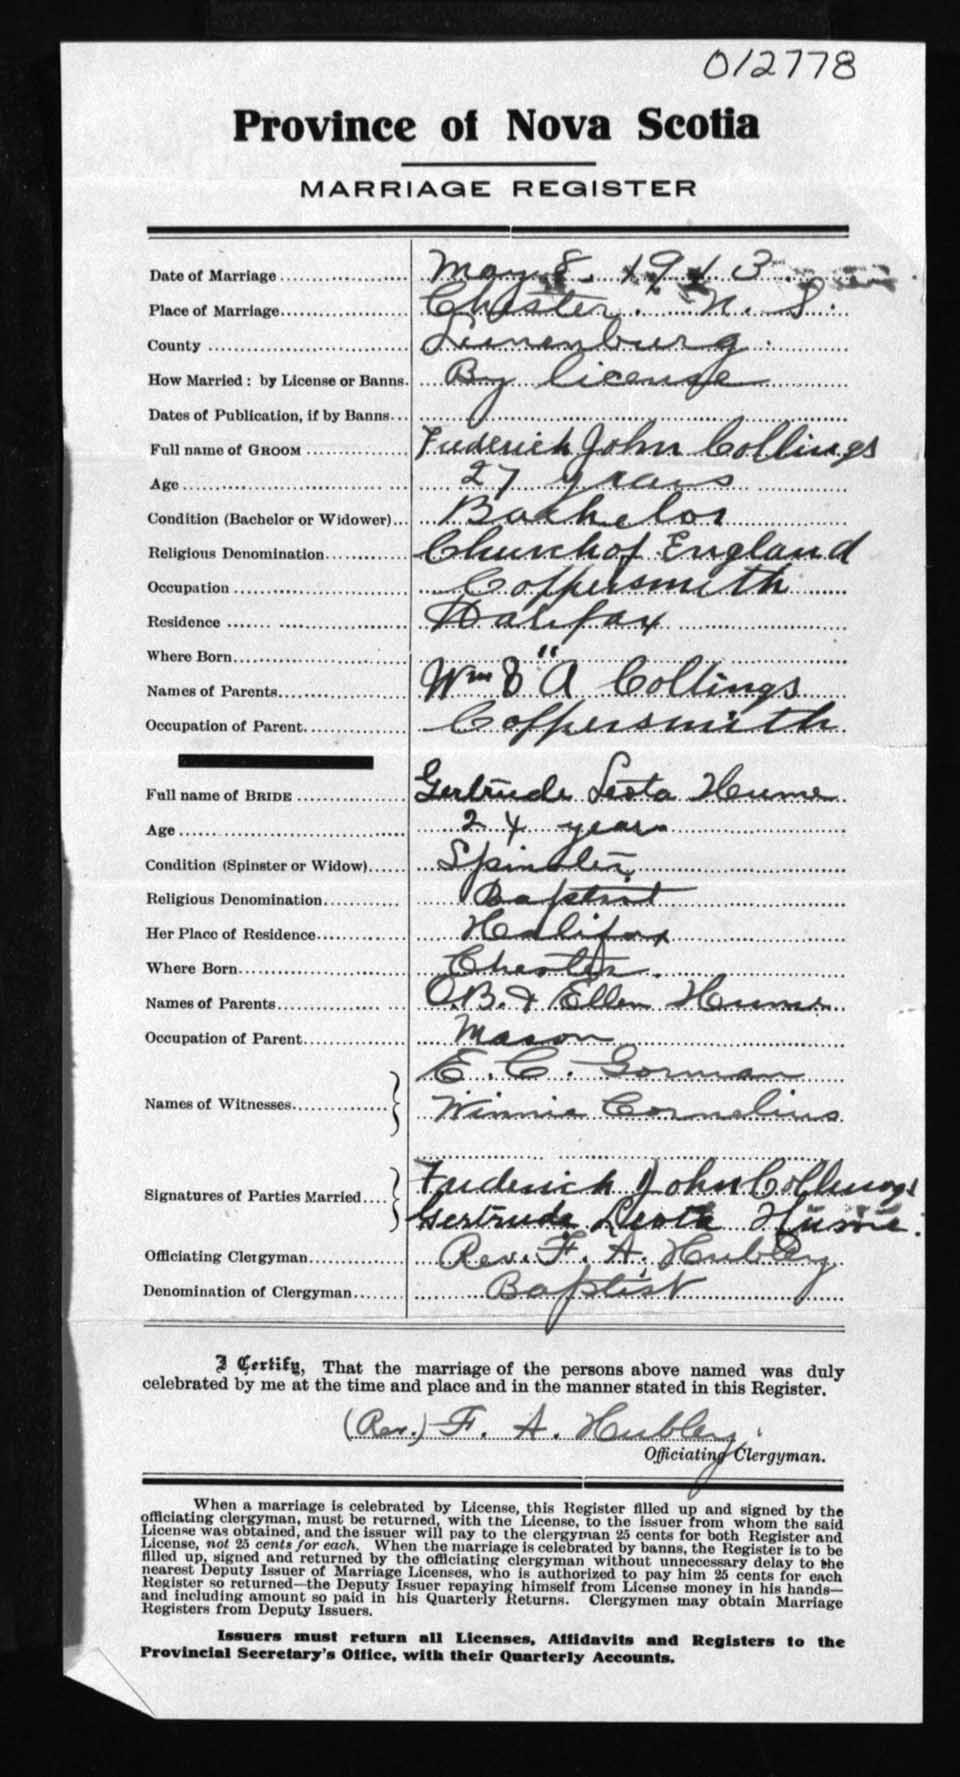 012778
Province of Nova Scotia
MARRIAGE REGISTER
Date of Marriage May 8. 1913
Place of Marriage Chester. N. S.
County Lunenburg.
How Married: by License or Banns. By license
Dates of Publication, if by Banns
Full name of GROOM Frederick John Collings
Age 27 years
Condition (Bachelor or Widower) Bachelor
Religious Denomination Church of England
Occupation Coppersmith
Residence Halifax
Where Born "
Names of Parents Wm & A Collings
Occupation of Parent Coppersmith
Full name of BRIDE Gertrude Leota Hume
Age 24 years
Condition (Spinster or Widow) Spinster
Religious Denomination Baptist
Her Place of Residence Halifax
Where Born Chester.
Names of Parents O.B. & Ellen Hume
Occupation of Parent Mason
E. C. Gorman
Names of Witnesses Winnie Cornelius
Frederick John Collings
Signatures of Parties Married
Gertrude Leota Hume.
Officiating Clergyman Rev. F. A. Hubley
Denomination of Clergyman Baptist
I Certify, That the marriage of the persons above named was duly
celebrated by me at the time and place and in the manner stated in this Register.
(Rev.) F. A. Hubley.
Officiating Clergyman.
When a marriage is celebrated by License, this Register filled up and signed by the
officiating clergyman, must be returned, with the License, to the issuer from whom the said
License was obtained, and the issuer will pay to the clergyman 25 cents for both Register and
License, not 25 cents for each. When the marriage is celebrated by banns, the Register is to be
filled up, signed and returned by the officiating clergyman without unnecessary delay to the
nearest Deputy Issuer of Marriage Licenses, who is authorized to pay him 25 cents for each
Register so returned—the Deputy Issuer repaying himself from License money in his hands—
and including amount so paid in his Quarterly Returns. Clergymen may obtain Marriage
Registers from Deputy Issuers.
Issuers must return all Licenses, Affidavits and Registers to the
Provincial Secretary's Office, with their Quarterly Accounts.